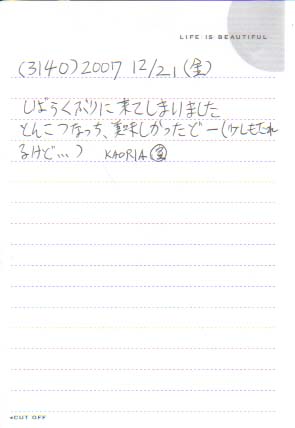 LIFE IS BEAUTIFUL
(3140) 2007 12/21 (金)
しばらくぶりに来てしまいました
とんこつなっち、美味しかったどー(少しもたれ
るけど…) KAORIA
CUT OFF